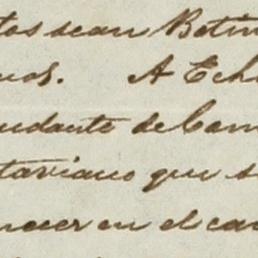 tos sean Betin
nos. A Eche
udante de Cam
taviano que s
nocer en el ca